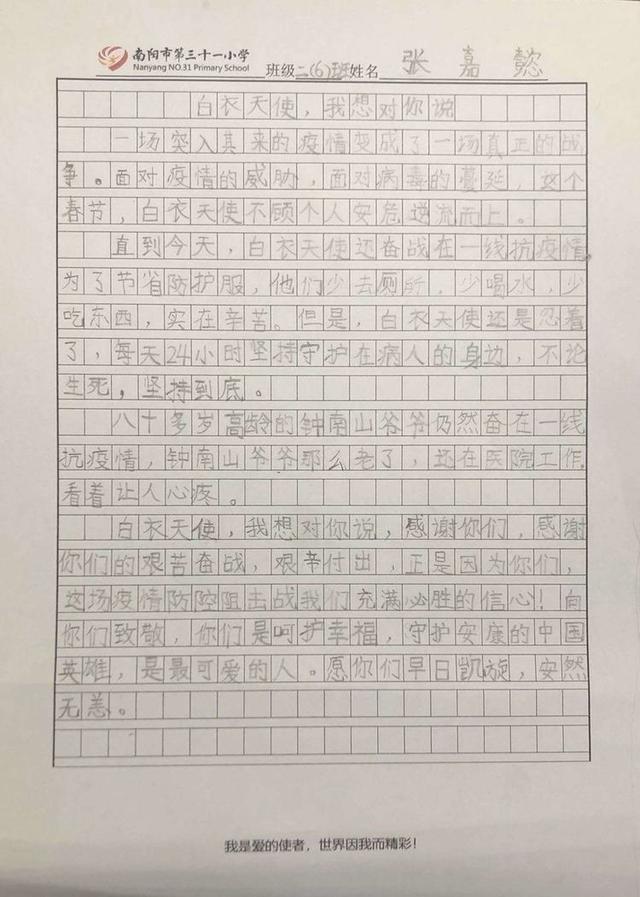 南阳市第三十一小学
Nanyang NO.31 Primary School
班级二(6)班姓名 张嘉懿
白衣天使，我想对你说
一场突入其来的疫情变成了一场真正的战
争。面对疫情的威胁，面对病毒的蔓延，这个
春节，白衣天使不顾个人安危逆流而上。
直到今天，白衣天使还奋战在一线抗疫情。
为了节省防护服，他们少去厕所，少喝水，少
吃东西，实在辛苦。但是，白衣天使还是忍着
了，每天24小时坚持守护在病人的身边，不论
生死，坚持到底。
八十多岁高龄的钟南山爷爷仍然奋在一线
抗疫情，钟南山爷爷那么老了，还在医院工作，
看着让人心疼。
白衣天使，我想对你说，感谢你们，感谢
你们的艰苦奋战，艰辛付出，正是因为你们，
这场疫情防控阻击战我们充满必胜的信心！向
你们致敬，你们是呵护幸福，守护安康的中国
英雄，是最可爱的人。愿你们早日凯旋，安然
无恙。
我是爱的使者，世界因我而精彩！